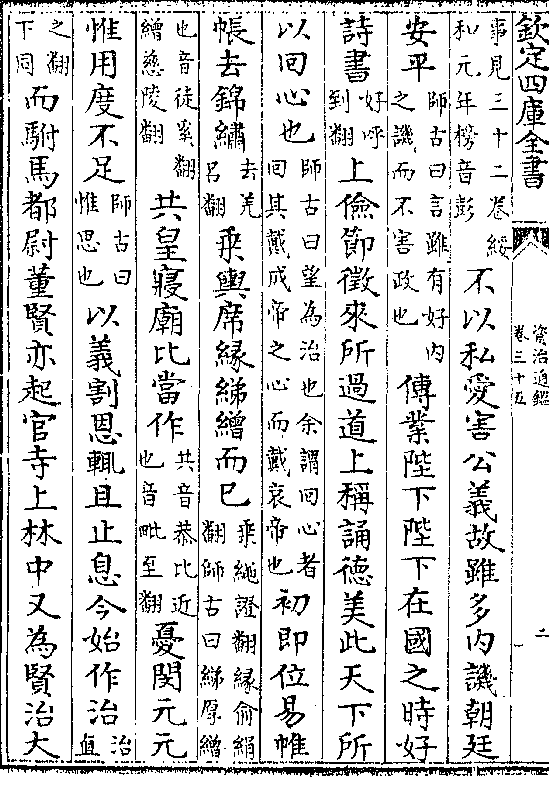 欽定四庫全書
資治通鑑
卷三十五
二
事見三十二卷綏
和元年榜音彭
不以私愛害公義故雖多内譏朝廷
安平
師古曰言雖有好内
之譏而不害政也
傅業陛下陛下在國之時好
詩書
好呼
到翻
上儉節徵來所過道上稱誦德美此天下所
以回心也
師古曰望為治也余謂回心者
回其戴成帝之心而戴哀帝也
初即位易帷
帳去錦繡
去羌
呂翻
乗輿席縁綈繒而已
乗繩證翻縁俞絹
翻師古曰綈厚繒
也音徒奚翻
繒慈陵翻
共皇寢廟比當作
共音恭比近
也音毗至翻
憂閔元元
惟用度不足
師古曰
惟思也
以義割恩輒且止息今始作治
治直
之翻
下同
而駙馬都尉董賢亦起官寺上林中又為賢治大